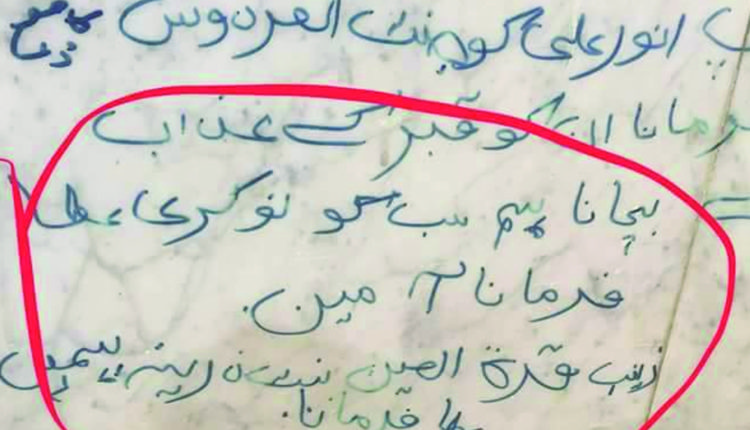 انور علی کو جنت الفردوس
فرمانا ان کو قبر کے عذاب
بچانا ہم سب کو نوکری عطا
فرمانا آمین.
زینب قدرة العین
عطا فرمانا.